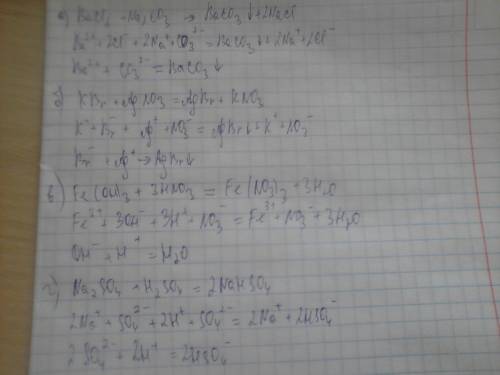 а) BaCl₂ + Na₂CO₃ → BaCO₃↓ + 2NaCl
Ba²⁺ + 2Cl⁻ + 2Na⁺ + CO₃²⁻ = BaCO₃↓ + 2Na⁺ + 2Cl⁻
Ba²⁺ + CO₃²⁻ = BaCO₃↓
б) KBr + AgNO₃ = AgBr + KNO₃
K⁺ + Br⁻ + Ag⁺ + NO₃⁻ = AgBr↓ + K⁺ + NO₃⁻
Br⁻ + Ag⁺ → AgBr↓
в) Fe(OH)₃ + 3HNO₃ = Fe(NO₃)₃ + 3H₂O
Fe³⁺ + 3OH⁻ + 3H⁺ + NO₃⁻ = Fe³⁺ + NO₃⁻ + 3H₂O
OH⁻ + H⁺ = H₂O
г) Na₂SO₄ + H₂SO₄ = 2NaHSO₄
2Na⁺ + SO₄²⁻ + 2H⁺ + SO₄²⁻ = 2Na⁺ + 2HSO₄⁻
2SO₄²⁻ + 2H⁺ = 2HSO₄⁻